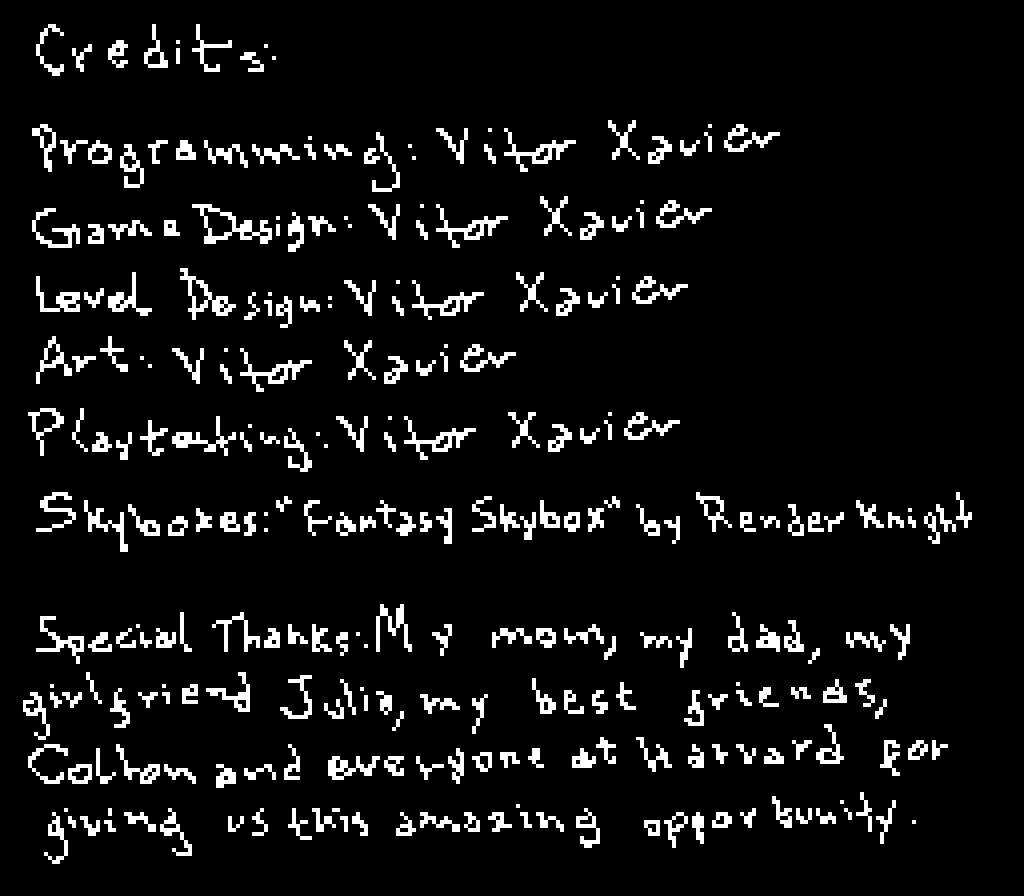 Credits:
Programming: Vitor Xavier
Game Design: Vitor Xavier
Level Design: Vitor Xavier
Art: Vitor Xavier
Playtesting: Vitor Xavier
Skyboxes: "Fantasy Skybox" by Render Knight
Special Thanks: My mom, my dad, my
girlfriend Julia, my best friends,
Colton and everyone at Harvard for
giving us this amazing opportunity.